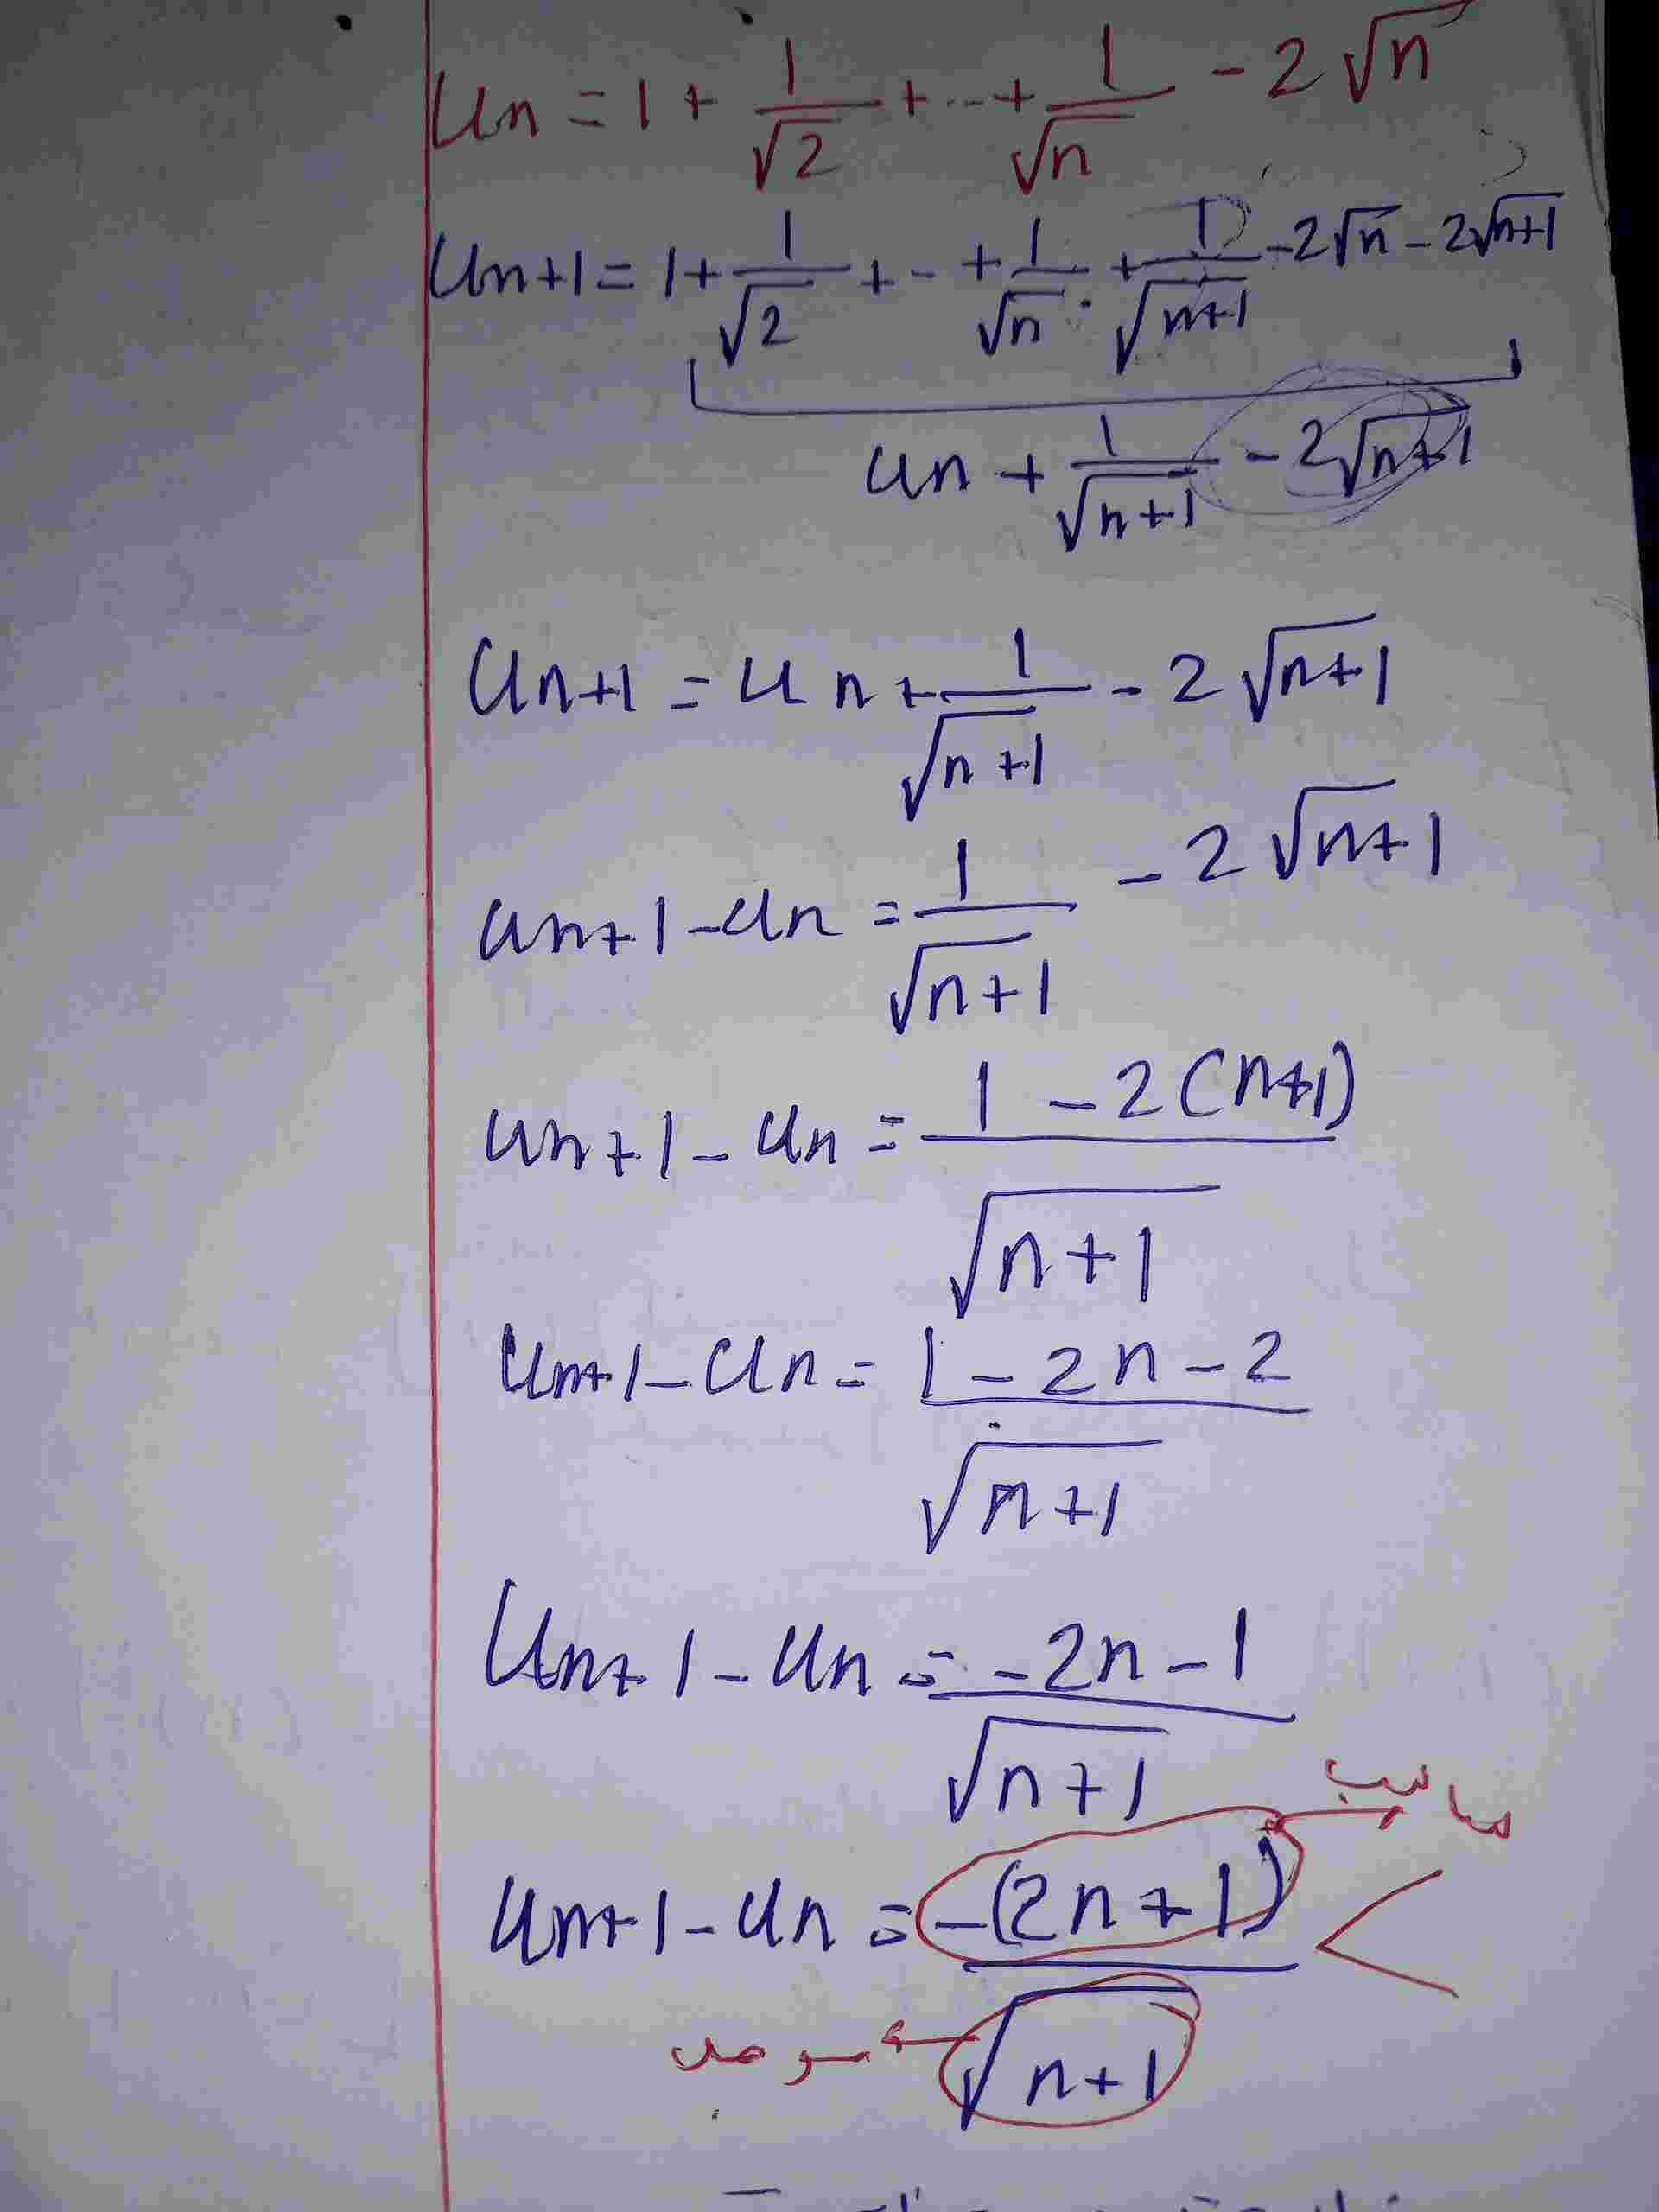 Un = 1 + 1/√2 + ... + 1/√n - 2√n
Un+1 = 1 + 1/√2 + - + 1/√n + 1/√n+1 - 2√n - 2√n+1
Un + 1/√n+1 - 2√n+1
Un+1 = Un + 1/√n+1 - 2√n+1
Un+1 - Un = 1/√n+1 - 2√n+1
Un+1 - Un = 1 - 2(n+1)/√n+1
Un+1 - Un = 1 - 2n - 2/√n+1
Un+1 - Un = -2n - 1/√n+1
سالب
Un+1 - Un = -(2n+1)/√n+1 <
موجب